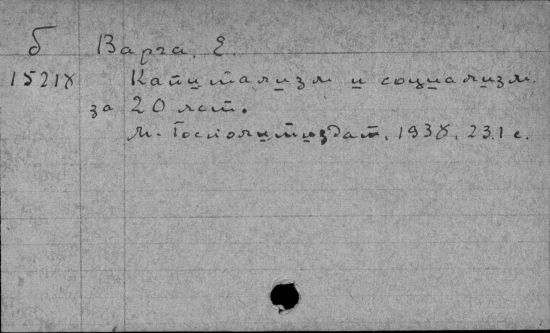 б Варга, Е.
15218 Капитализм и социализм
за 20 лет.
М. Госполитиздат, 1938, 231 с.